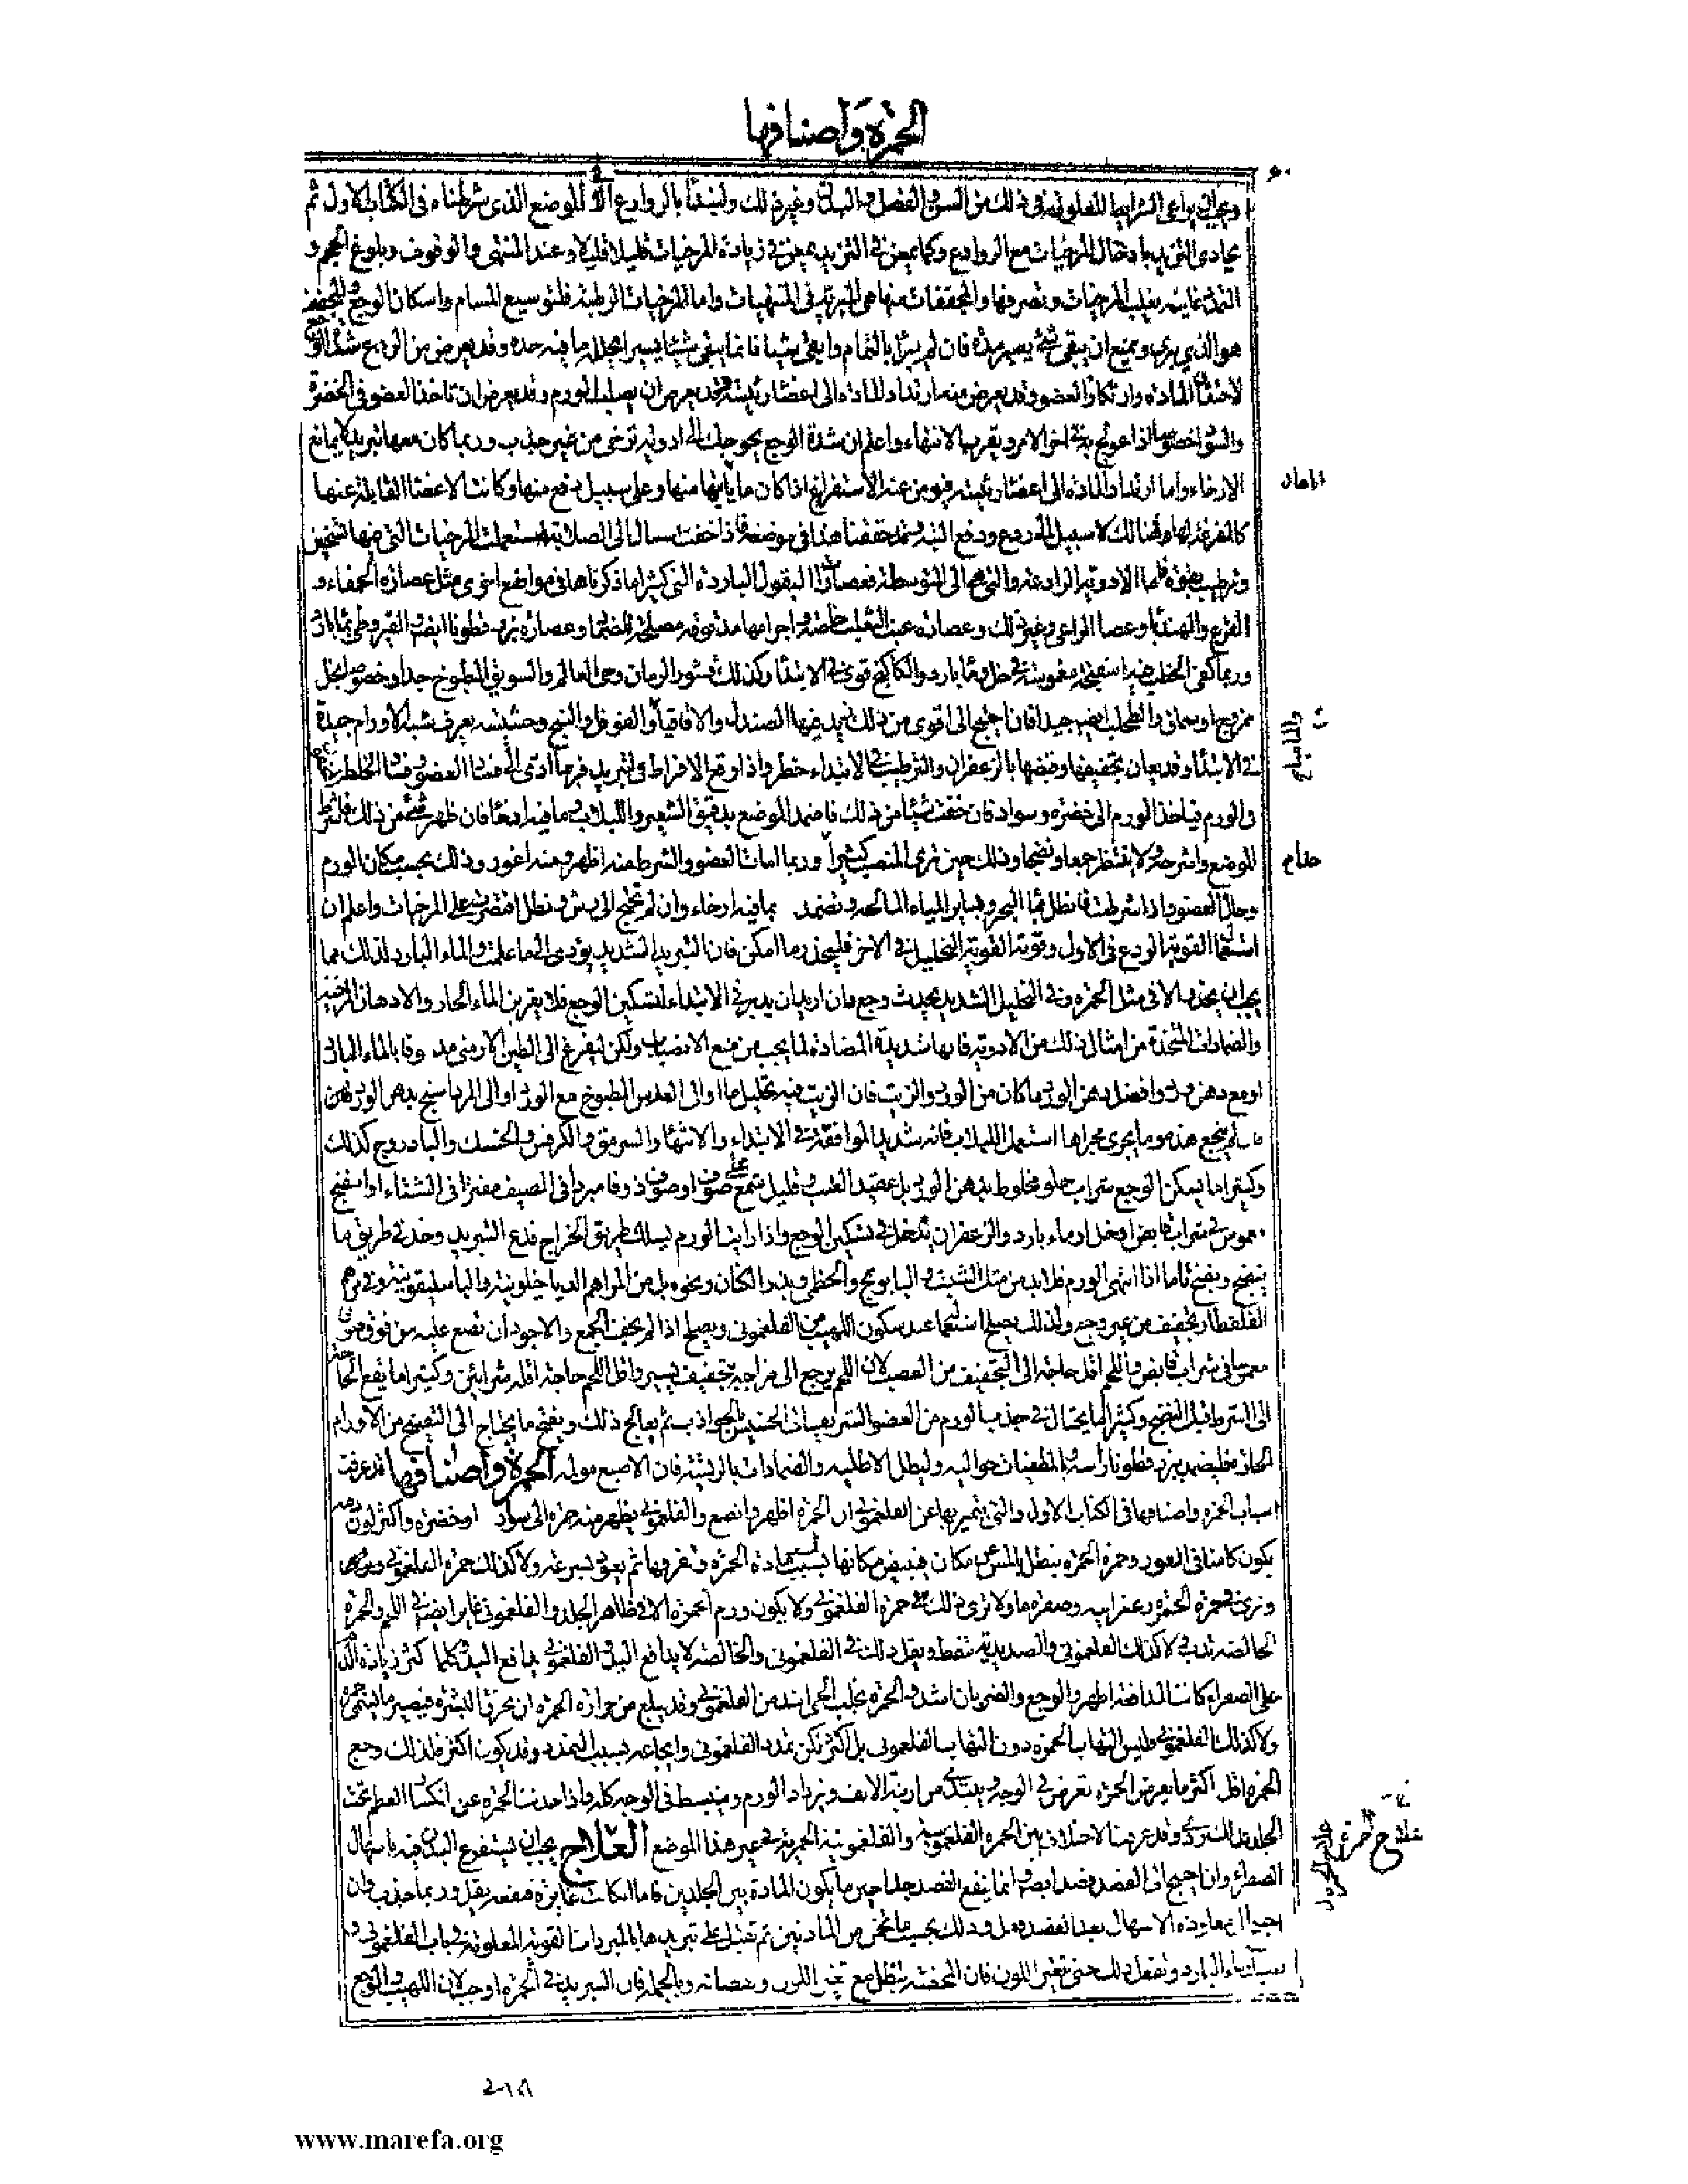 الحمرة واصنافها
ويجب ان يراعى الشرايط المعلومة في ذلك من السن والفصل والبلد وغير ذلك وليبتدأ بالروادع الا للموضع الذي شرطناه في الكتاب الاول ثم
يحاذى التزيد بادخال المرخيات مع الروادع وكلما يمعن في التزيد يمعن في زيادة المرخيات قليلا قليلا وعند المنتهى والوقوف وبلوغ الحجم و
التمدد غايته يغلب المرخيات ويصرفها والمجففات منها هي المبرئة في المنتهيات واما المرخيات الرطبة فلتوسيع المسام واسكان الوجع والمجفف
هو الذي يبرئ ويمنع ان يبقى شئ يصير مدة فان لم يبرأ بالتمام وابقى شيئا فانما يبقى شيئا يسيرا يحلله ما فيه حدة وقد يعرض من الردع شدة الوجع
لاختناق المادة وارتكاز العضو وقد يعرض منه ارتداد المادة الى اعضاء رئيسة وقد يعرض ان يصلب الورم وقد يعرض ان تاخذ العضو في الخضرة
والسواد خصوصا اذا عولج به في اخر الامر وبقرب الانتهاء واعلم ان شدة الوجع يحوجك الى ادوية ترخى من غير جذب وربما كان معها تبريد لا يمانع
الارخاء واما ارتداد المادة الى اعضاء رئيسة فيؤمن عنه الاستفراغ اذا كان ما ياتيها منها وعلى سبيل دفع منها وكانت الاعضاء القابلة عنها
كالمفرغة لها وهنالك لا سبيل الى ردع ودفع البتة وقد حققنا هذا في موضعه فاذا خفت ميلا الى الصلابة استعملت المرخيات التي فيها تسخين
وترطيب بقوة فاما الادوية الرادعة والتي هي الى المتوسطة فعصارات البقول الباردة التي كثيرا ما ذكرناها في مواضع اخرى مثل عصارة الحمقاء و
القرع والهندبا وعصا الراعي وغير ذلك وعصارة عنب الثعلب خاصة واجرامها مدقوقة مصلحة للضماد وعصارة بزر قطونا ايضا والقيروطى بماء بارد
وربما كفى الخطب فيه اسفنجة مغموسة في خل وماء بارد والكاكنج قوي في الابتداء وكذلك قشور الرمان وحى العالم والسويق المطبوخ جدا وخصوصا بخل
ممزوج او سماق والطحلب ايضا جيد فان احتيج الى اقوى من ذلك زيد فيها الصندل والاقاقيا والفوفل والبنج وحشيشة يعرف بشبه الاورام جيدة
في الابتداء وقد يعان تجفيفها وقبضها بالزعفران والترطيب في الابتداء خطر واذا وقع الافراط في تبريد فربما ادى الى فساد العضو وفساد الخلط
في الورم فياخذ الورم الى خضرة وسواد فان خفت شيئا من ذلك فاضمد الموضع بدقيق الشعير واللبلاب وما فيه ارخاء فان ظهر شئ من ذلك فاشرط
الموضع واشرحه ولا ينتظر جمعا ونضجا وذلك حين ترى المنصب كثيرا وربما امات العضو والشرط منه اظهر ومنه اغور وذلك بحسب مكان الورم
وحال العضو واذا شرطت فانطل بماء البحر وسائر المياه المالحة وتضمد بما فيه ارخاء وان لم تحتج الى رش ونطل اقتصرت على المرخيات واعلم ان
استعمال القوية الردع في الاول وقوية القوية التحليل في الاخر فليحذر ما امكن فان التبريد الشديد يؤدى الى ما علمت والماء البارد لذلك مما
يجب ان يجتنب الا في مثل الحمرة وفي التحليل الشديد يحدث وجع فان اريد ان يدبر في الابتداء لتسكين الوجع فلا يقربن الماء الحار والادهان المرخية
والضمادات المتخذة من امثال ذلك من الادوية فانها شديدة المضادة لما يجب من منع الانصباب ولكن ليفزع الى الطين الارمني مدوفا بالماء البارد
او مع دهن ورد وافضل دهن الورد ما كان من الورد والزيت فان الزيت فيه تحليل ما او الى العدس المطبوخ مع الورد او الى المرداسنج بدهن الورد فان
لم ينجع هذه وما يجرى مجراها استعمل اللبلاب فانه شديد الموافقة في الابتداء والانتهاء والسرمق والكرفس والخسك والبادروج كذلك
وكثيرا ما يسكن الوجع شراب حلو مخلوط بدهن الورد بل عقيد العنب وقليل شمع على صوف او صوف زوفا مبردا في الصيف مفترا في الشتاء او اسفنج
مغموس في شراب قابض او خل او ماء بارد والزعفران يدخل في تسكين الوجع واذا رايت الورم يسلك طريق الخراج فدع التبريد وخذ في طريق ما
ينضج ويفتح فاما اذا انتهى الورم فلا بد من مثل الشبت والبابونج والخطمى وبزر الكتان ونحوه بل من المراهم الدياخيلونية والباسليقونية وفي مرهم
القلقطار تجفيف من غير وجع ولذلك يصلح استعماله عند سكون اللهيب من الفلغمونى ويصلح اذا لم يخف الجمع والاجود ان تضع عليه من فوق صوفا
مغموسا في شراب قابض واللحم اقل حاجة الى التجفيف من العصب لان اللحم يرجع الى مزاجه بتجفيف يسير واقل اللحم حاجة اقله شرائين وكثيرا ما يقع الحاجة
الى الشرط قبل النضج وكثيرا ما يحتال في جذب الورم من العضو الشريف الى الخسيس بالجواذب ثم يعالج ذلك ويفتح ما يحتاج الى التفتيح من الاورام
الحارة فليضمد ببزر قطونا راسه والمطفيات حواليه وليطل الاطلية والضمادات بالريشة فان الاصبع مولمة الحمرة واصنافها قد عرفت
اسباب الحمرة واصنافها في الكتاب الاول والتي يتميز بها عن الفلغمونى ان الحمرة اظهر وانصع والفلغمونى يظهر منه حمرة الى سواد او خضرة واكثر لونه
يكون كامنا في الغور وحمرة الحمرة يبطل بالمس من مكان فيبيض مكانها بسبب لطافة مادة الحمرة وتفرقها ثم يعود بسرعة ولا كذلك حمرة الفلغمونى
وترى في حمرة الحمرة زعفرانية وصفرة ما ولا ترى ذلك في حمرة الفلغمونى ولا يكون ورم الحمرة الا في ظاهر الجلد والفلغمونى غاير ايضا في اللحم والحمرة
الخالصة تدب ولا كذلك الفلغمونى والصديدية تنفط ويقل ذلك في الفلغمونى والخالصة لا يدافع اليد والفلغمونى يدافع اليد وكلما كثر زيادة الدم
على الصفراء كانت المدافعة اظهر والوجع والضربان اشد والحمرة يجلب الحمى اشد من الفلغمونى وقد يبلغ من حرارة الحمرة ان يحرق البشرة فيصير ما يسمى جمرة
ولا كذلك الفلغمونى وليس التهاب الحمرة دون التهاب الفلغمونى بل اكثر لكن تمدد الفلغمونى وايجاعه بسبب التمدد وقد يكون اكثر فلذلك وجع
الحمرة اقل اكثر ما يعرض الحمرة تعرض في الوجه ويبتدئ من ارنبة الانف ويزداد الورم وينبسط في الوجه كله واذا حدثت الحمرة عن انكسار العظم تحت
الجلد فذلك ردئ وقد عرفنا الاختلاف بين الحمرة الفلغمونية والفلغمونية الحمرية في غير هذا الموضع العلاج يجب ان يستفرغ البدن فيه باسهال
الصفراء وان احتيج الى الفصد فصد ايضا وانما ينفع الفصد جدا حين ما يكون المادة بين الجلدين فاما ان كانت غايرة فنفعه يقل وربما جذب وان
احتيج الى معاودة الاسهال بعد الفصد فعل وذلك بحسب ما تخمن من المادتين ثم تقبل على تبريدها بالمبردات القوية المعلومة في باب الفلغمونى و
صب الماء البارد وتفعل ذلك حتى يتغير اللون فان المحضة تبطل مع تغير اللون ونقصانه وبالجملة فان التبريد في الحمرة اوجب لان اللهيب والوجع
علاج الحمرة
www.marefa.org